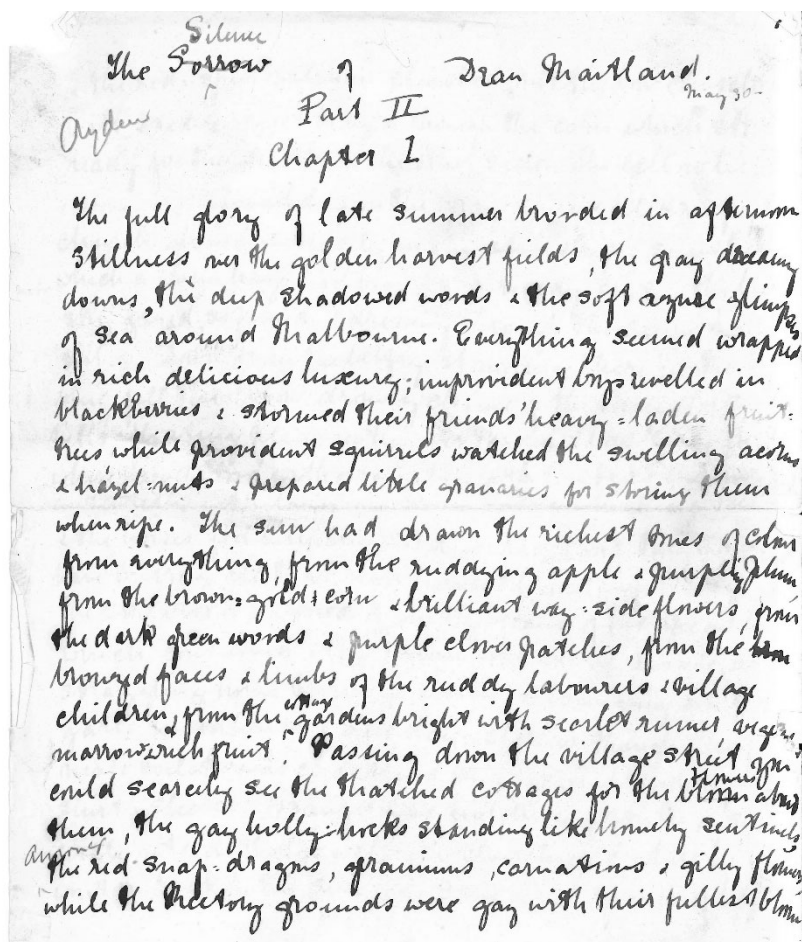 Silence
The Sorrow of Dean Maitland.
May 30
Part II
Chapter I
The full glory of late summer brooded in afternoon
stillness over the golden harvest fields, the gray dreamy
downs, the deep shadowed woods & the soft azure glimpses
of sea around Malbourne. Everything seemed wrapped
in rich delicious luxury; improvident boys revelled in
blackberries & stormed their friends' heavy=laden fruit=
trees while provident squirrels watched the swelling acorns
& hazel=nuts & prepared little granaries for storing them
when ripe. The sun had drawn the richest tones of colour
from everything, from the ruddying apple & purpling plum
from the brown=gold=corn & brilliant way=side flowers, from
the dark green woods & purple clover patches, from the
bronzed faces & limbs of the ruddy labourers & village
children, from the cottage gardens bright with scarlet runner vege=
marrow & rich fruit. Passing down the village street you
could scarcely see the thatched cottages for the flowers bloom about
them, the gay holly=hocks standing like homely sentinels
among
the red snap=dragons, geraniums, carnations & gilly flowers
while the Rectory grounds were gay with their fullest bloom